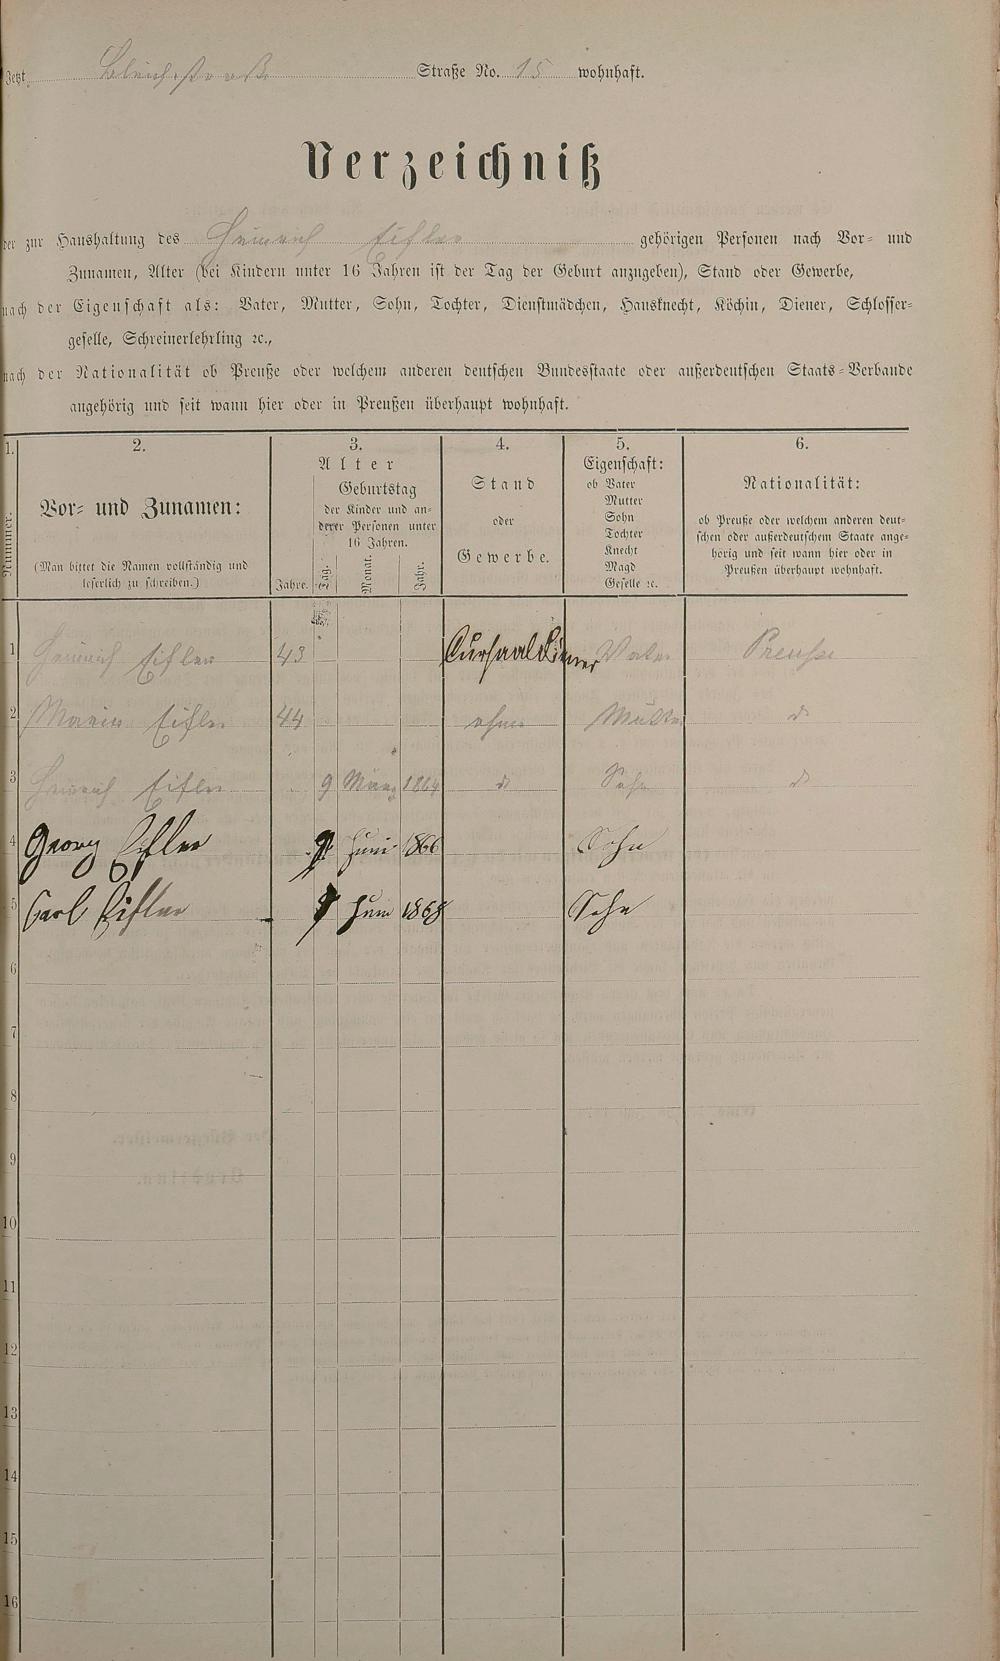 Jetzt Bleichstraße Straße No. 15 wohnhaft.
Verzeichniß
der zur Haushaltung des Heinrich Eifler gehörigen Personen nach Vor- und
Zunamen, Alter (bei Kindern unter 16 Jahren ist der Tag der Geburt anzugeben), Stand oder Gewerbe,
nach der Eigenschaft als: Vater, Mutter, Sohn, Tochter, Dienstmädchen, Hausknecht, Köchin, Diener, Schlosser-
geselle, Schreinerlehrling ꝛc.,
nach der Nationalität ob Preuße oder welchem anderen deutschen Bundesstaate oder außerdeutschen Staats-Verbande
angehörig und seit wann hier oder in Preußen überhaupt wohnhaft.
1. 2. 3. 4. 5. 6.
Nummer.
Vor- und Zunamen:
(Man bittet die Namen vollständig und
leserlich zu schreiben.)
Alter
Jahre.
Geburtstag
der Kinder und an-
derer Personen unter
16 Jahren.
Tag. Monat. Jahr.
Stand
oder
Gewerbe.
Eigenschaft:
ob Vater
Mutter
Sohn
Tochter
Knecht
Magd
Geselle ꝛc.
Nationalität:
ob Preuße oder welchem anderen deut-
schen oder außerdeutschem Staate ange-
hörig und seit wann hier oder in
Preußen überhaupt wohnhaft.
1 Heinrich Eifler 43 Cursaaldiener Vater Preuße
2 Maria Eifler 44 ohne Mutter do
3 Heinrich Eifler 9 März 1864 do Sohn do
4 Georg Eifler 9 Juni 1866 Sohn
5 Carl Eifler Juni 1868 Sohn
6
7
8
9
10
11
12
13
14
15
16